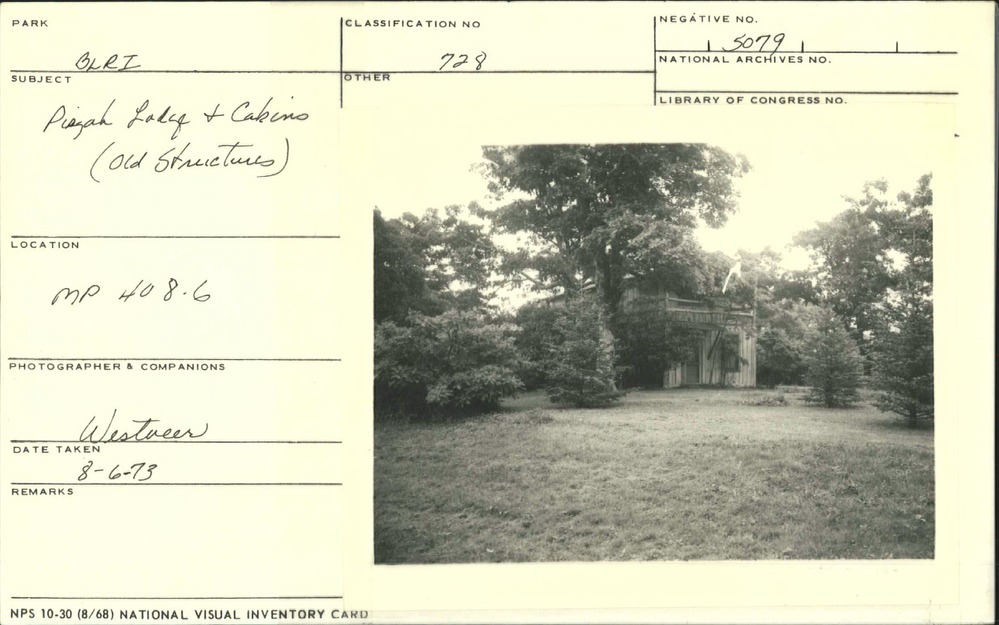 PARK
BLRI
CLASSIFICATION NO
728
NEGATIVE NO.
5079
NATIONAL ARCHIVES NO.
SUBJECT
Pisgah Lodge + Cabins
(Old Structures)
OTHER
LIBRARY OF CONGRESS NO.
LOCATION
MP 408.6
PHOTOGRAPHER & COMPANIONS
Westveer
DATE TAKEN
8-6-73
REMARKS
NPS 10-30 (8/68) NATIONAL VISUAL INVENTORY CARD